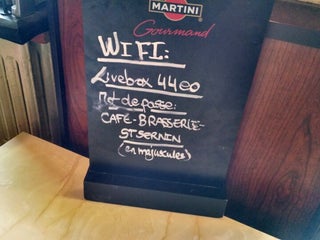 MARTINI
Gourmand
WIFI:
Livebox 44e0
Mot de passe:
CAFÉ-BRASSERIE-
STSERNIN
(en majuscules)